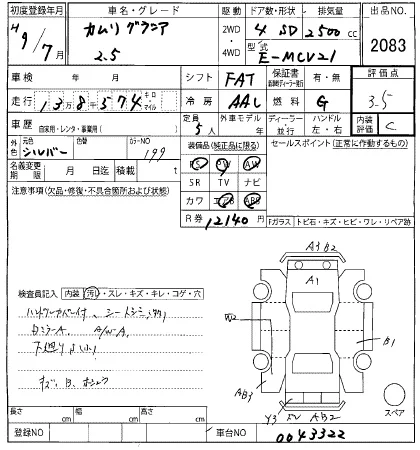 初度登録年月 車名・グレード 駆動 ドア数・形状 排気量 出品NO.
H9/7月 カムリ グラシア 2WD 4 SD 2500 cc 2083
2.5 4WD 型式 E-MCV21
車検 年 月 シフト FAT 保証書 有・無 評価点
走行 138574 キロ・マイル 冷房 AAC 燃料 G 3.5
車歴 自家用・レンタ・事業用( ) 定員 5人 外車モデル 年 ディーラー・並行 ハンドル 左・右 内装評価 C
外色 元色 シルバー 色替 カラーNO 199 装備品(純正品に限る) セールスポイント(正常に作動するもの)
PS PW AW
名義変更期限 月 日迄 積載 t SR TV ナビ
注意事項(欠品・修復・不具合箇所および状態) カワ エアB ABS
R券 12140円 Fガラス トビ石・キズ・ヒビ・ワレ・リペア跡
A3 B2
A1
検査員記入 内装 汚れ・スレ・キズ・キレ・コゲ・穴
B1
AB3
Y3 AB2
スペア
長さ cm 幅 cm 高さ cm
登録NO 車台NO 0043322